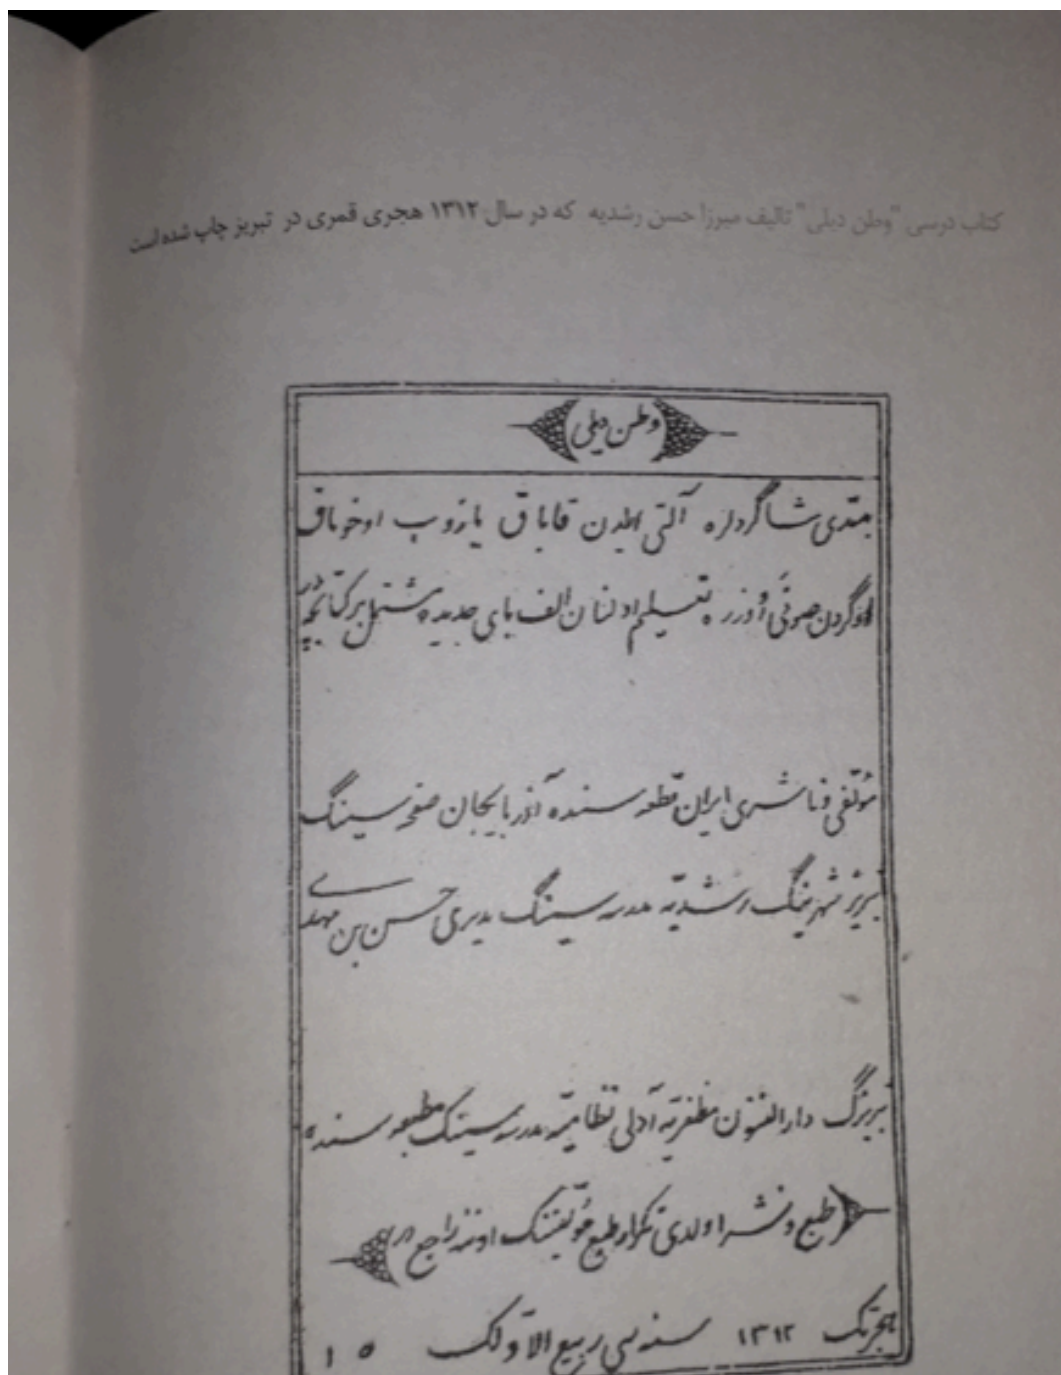 کتاب درسی "وطن دیلی" تالیف میرزا حسن رشدیه که در سال ۱۳۱۲ هجری قمری در تبریز چاپ شده است
وطن دیلی
مبتدی شاگردلره آلتی ایلیدن قاباق یازوب اوخوماق
صوتی اوزره تعلیم اولنان الف بای جدیده مشتمل بر کتابچه در
مؤلفی و ناشری ایران قطعه سنده آذربایجان صفحه سینگ
تبریز شهرینگ رشدیه مدرسه سینگ مدیری حسن بن مهدی
تبریزگ دارالفنون مظفریه آدلی نظامیه مدرسه سینگ مطبعه سنده
طبع و نشر اولدی تکرار طبع مؤلفینگ اوزنه راجع در
هجرتک ۱۳۱۲ سنه سی ربیع الاولک ۱۵